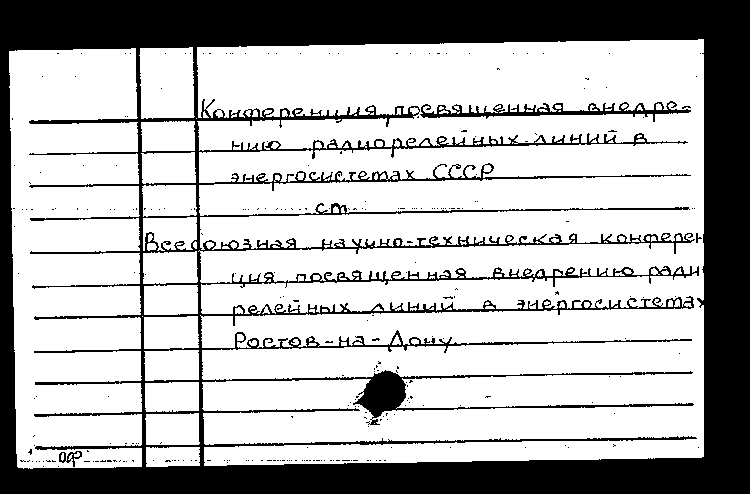 Конференция, посвященная внедре-
нию радиорелейных линий в
энергосистемах СССР
ст
Всесоюзная научно-техническая конферен
ция, посвященная внедрению ради
релейных линий в энергосистемах
Ростов-на-Дону.
ОФ